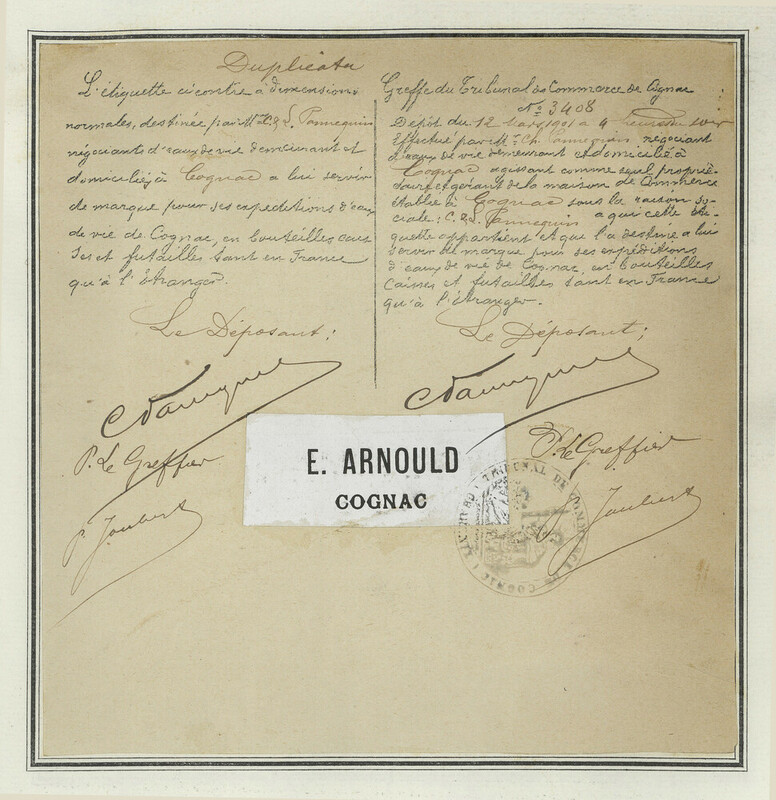 Duplicata
L'étiquette ci contre à dimensions
normales, destinée par MM. C. & L. Pannequin
négociants d'eaux de vie demeurant et
domiciliés à Cognac a lui servir
de marque pour ses expéditions d'eaux
de vie de Cognac, en bouteilles cais
ses et futailles tant en France
qu'à l'étranger.
Le Déposant:
P. Le Greffier
P. Joubert
Greffe du Tribunal de Commerce de Cognac
No 3408
Dépôt du 12 1901 à 4 heures du soir
Effectué par Mr. Ch. Pannequin négociant
d'eaux de vie demeurant et domicilié à
Cognac agissant comme seul proprié-
taire et gérant de la maison de Commerce
établie à Cognac sous la raison so-
ciale: C. & L. Pannequin a qui cette éti-
quette appartient et qui l'a destinée a lui
servir de marque pour ses expéditions
d'eaux de vie de Cognac, en bouteilles
Caisses et futailles tant en France
qu'à l'étranger.
Le Déposant;
P. Le Greffier
P. Joubert
E. ARNOULD
COGNAC
TRIBUNAL DE COMMERCE DE COGNAC